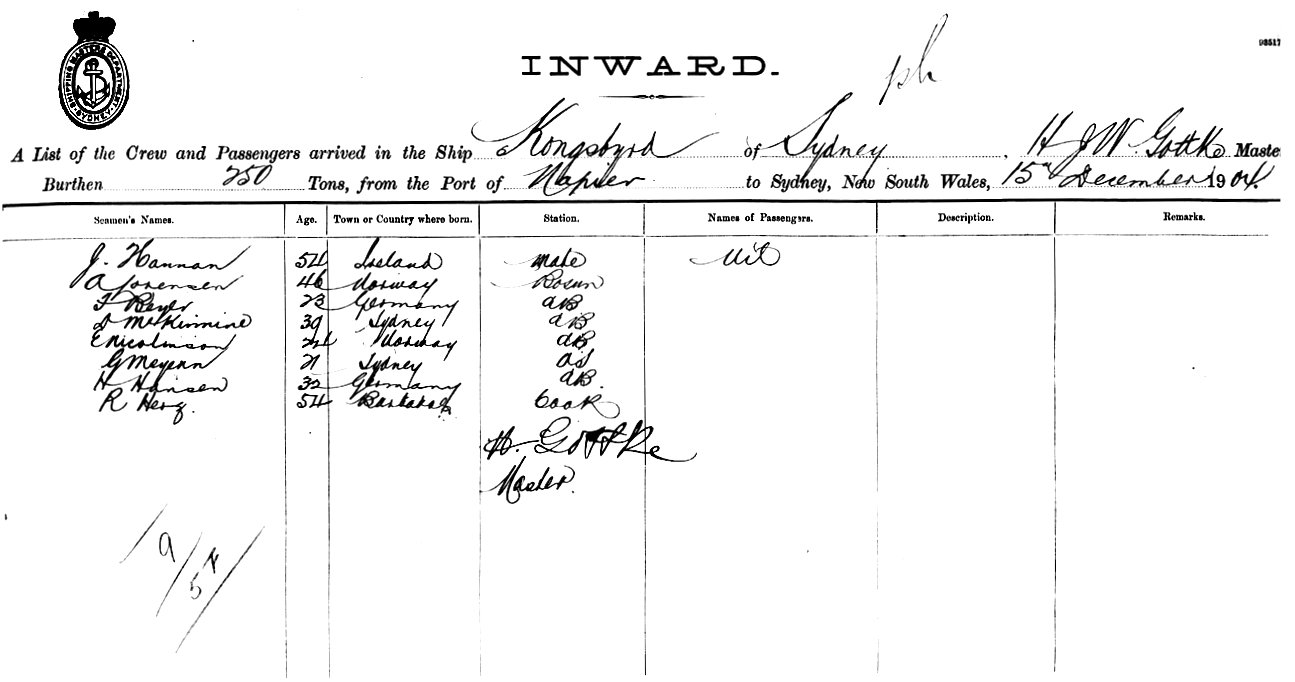 SHIPPING MASTERS DEPARTMENT SYDNEY
98517
INWARD.
A List of the Crew and Passengers arrived in the Ship Kongsbyrd of Sydney, H J W. Gottke Maste
Burthen 250 Tons, from the Port of Napier to Sydney, New South Wales, 15th December 1904.
Seamen's Names. Age. Town or Country where born. Station. Names of Passengers. Description. Remarks.
J. Hannan 54 Ireland Mate Nil
A Sorensen 46 Norway Bosun
F Beyer 23 Germany AB
D McKinnine 39 Sydney AB
E Nicolinson Norway AB
G Meyenn 21 Sydney OS
H Hansen 32 Germany AB.
R Herq. 54 Cook
H. Gottke
Master.
9/54